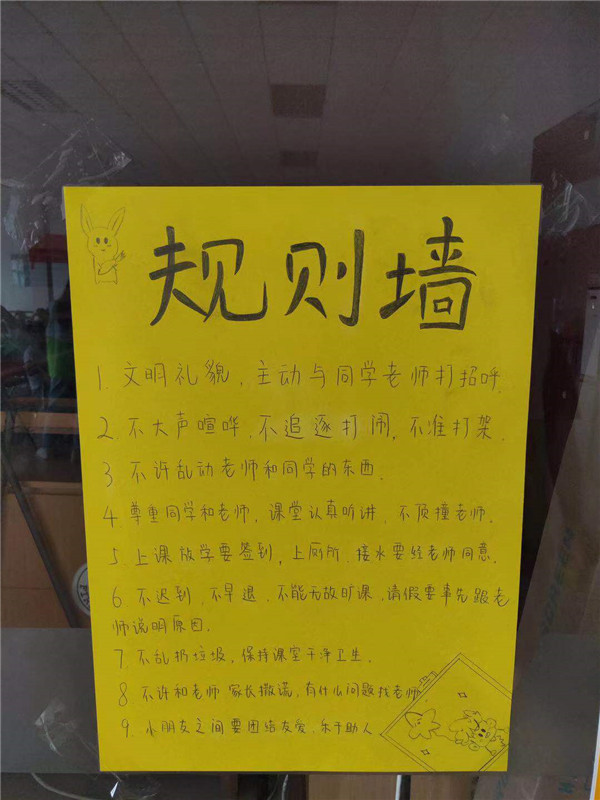 规则墙
1. 文明礼貌，主动与同学老师打招呼。
2. 不大声喧哗，不追逐打闹，不准打架。
3 不许乱动老师和同学的东西．
4. 尊重同学和老师，课堂认真听讲，不顶撞老师。
5. 上课放学要签到，上厕所、接水要经老师同意。
6 不迟到、不早退、不能无故旷课，请假要事先跟老
师说明原因．
7 不乱扔垃圾，保持课室干净卫生．
8 不许和老师 家长撒谎，有什么问题找老师
9. 小朋友之间要团结友爱，乐于助人